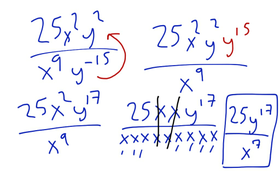 25x²y² / x⁹y⁻¹⁵
25x²y²y¹⁵ / x⁹
25x²y¹⁷ / x⁹
25xxy¹⁷ / xxxxxxxxx
25y¹⁷ / x⁷